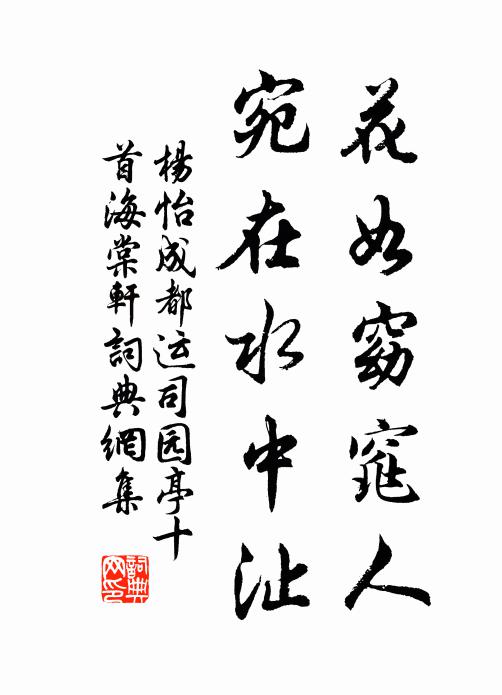 花如窈窕人
宛在水中沚
楊怡成都运司园亭十
首海棠軒詞典網集
詞典
网印